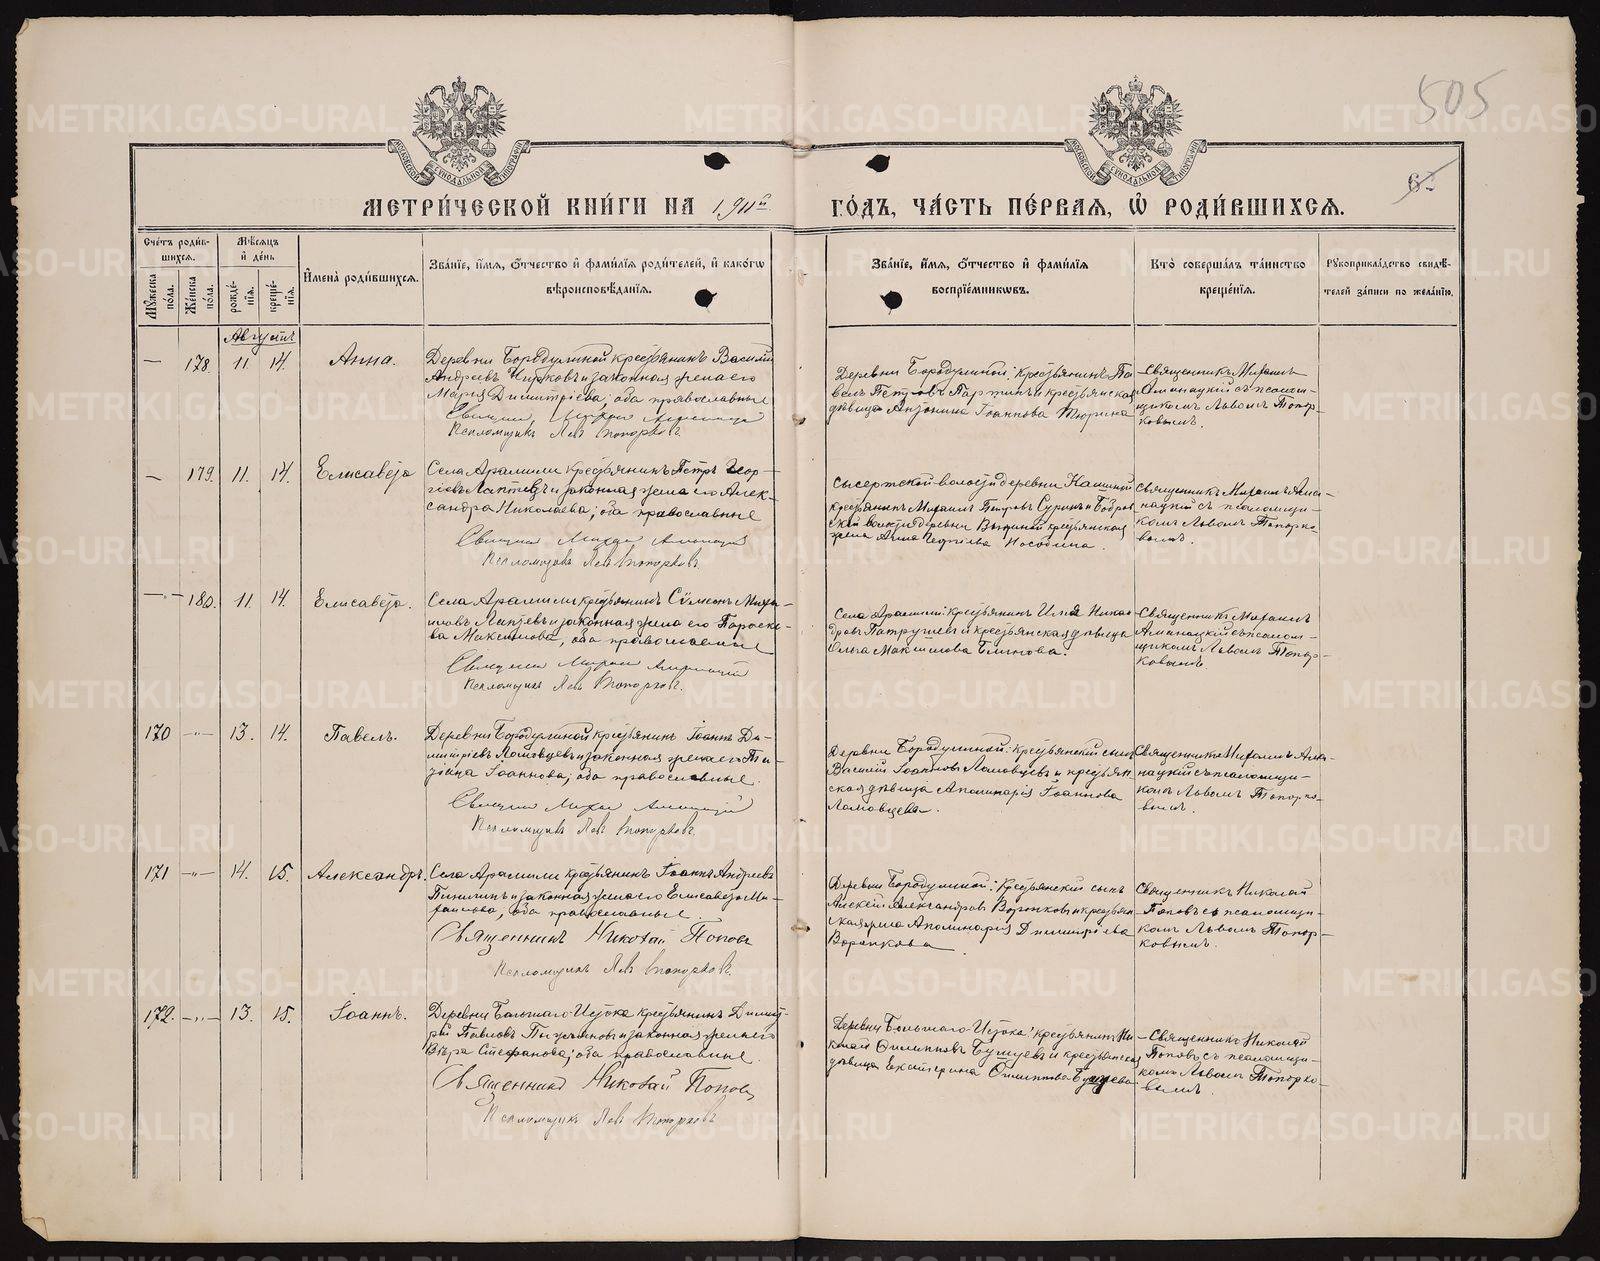 505
6
МЕТРИ́ЧЕСКОЙ КНИ́ГИ НА 1911й ГО́ДЪ, ЧА́СТЬ ПЕ́РВАЯ, Ѽ РОДИ́ВШИХСЯ.
Сче́тъ роди́вшихся.
Мꙋ́жеска по́ла.
Же́нска по́ла.
Мѣ́сяцъ и҆ де́нь
рожде́нїя.
креще́нїя.
И҆мена̀ роди́вшихся.
Зва́нїе, и҆́мя, ѻ҆́тчество и҆ фами́лїя роди́телей, и҆ како́гѡ
вѣроисповѣ́данїя.
Зва́нїе, и҆́мя, ѻ҆́тчество и҆ фами́лїя
воспрїе́мникѡвъ.
Кто̀ соверша́лъ та́инство
креще́нїя.
Рꙋкоприкла́дство свидѣ́-
телей за́писи по жела́нїю.
Августъ
— 178. 11. 14. Анна.
Деревни Бородулиной крестьянинъ Василий
Андреевъ Чирковъ и законная жена его
Мария Димитриева; оба православные
Псаломщикъ Левъ Топорковъ.
Деревни Бородулиной: крестьянинъ Па-
велъ Петровъ Паргинъ и крестьянская
дѣвица Антонина Іоаннова Тюрина
Священникъ Михаилъ
Аманацкий съ псалом-
щикомъ Львомъ Топор-
ковымъ.
— 179. 11. 14. Елисавета
Села Арамили крестьянинъ Петръ Геор-
гіевъ Лаптевъ и законная жена его Алек-
сандра Николаева; оба православные
Псаломщикъ Левъ Топорковъ.
Сысертской волости деревни Кашиной
крестьянинъ Михаилъ Петровъ Суринъ и Бобров-
ской волости деревни крестьянская
жена Анна Георгіева Носодина.
Священникъ Михаилъ Ама-
нацкий съ псаломщи-
комъ Львомъ Топорко-
вымъ.
—"— 180. 11. 14. Елисавета.
Села Арамили крестьянинъ Сѵмеонъ Михаи-
ловъ Лаптевъ и законная жена его Параске-
ва Максимова, оба православные
Псаломщикъ Левъ Топорковъ.
Села Арамили: крестьянинъ Илія Никан-
дровъ Патрушевъ и крестьянская дѣвица
Ольга Максимова Блинова.
Священникъ Михаилъ
Аманацкий съ псалом-
щикомъ Львомъ Топор-
ковымъ.
170 —"— 13. 14. Павелъ.
Деревни Бородулиной крестьянинъ Іоаннъ Ди-
митріевъ Ломовцевъ и законная жена его Та-
тіана Іоаннова; оба православные.
Псаломщикъ Левъ Топорковъ.
Деревни Бородулиной: крестьянскій сынъ
Василій Іоанновъ Ломовцевъ и крестьян-
ская дѣвица Аполинарія Іоаннова
Ломовцева.
Священникъ Михаилъ Ама-
нацкій съ псаломщи-
комъ Львомъ Топорко-
вымъ.
171 —"— 14. 15. Александръ.
Села Арамили крестьянинъ Іоаннъ Андреевъ
и законная жена его Елисавета Ми-
хаилова, оба православные.
Священникъ Николай Поповъ
Псаломщикъ Левъ Топорковъ.
Деревни Бородулиной: Крестьянскій сынъ
Алексѣй Александровъ Воронковъ и крестьян-
ская жена Аполинарія Димитріева
Воронкова
Священникъ Николай
Поповъ съ псаломщи-
комъ Львомъ Топор-
ковымъ.
172. —"— 13. 15. Іоаннъ.
Деревни Большаго-Истока крестьянинъ Димит-
рій Павловъ и законная жена его
Вѣра Стефанова; оба православные.
Священникъ Николай Поповъ
Псаломщикъ Левъ Топорковъ
Деревни Большаго-Истока: крестьянинъ Ни-
колай Филипповъ Бушуевъ и крестьянская
дѣвица Екатерина Филиппова Бушуева
Священникъ Николай
Поповъ съ псаломщи-
комъ Львомъ Топорко-
вымъ.
METRIKI.GASO-URAL.RU